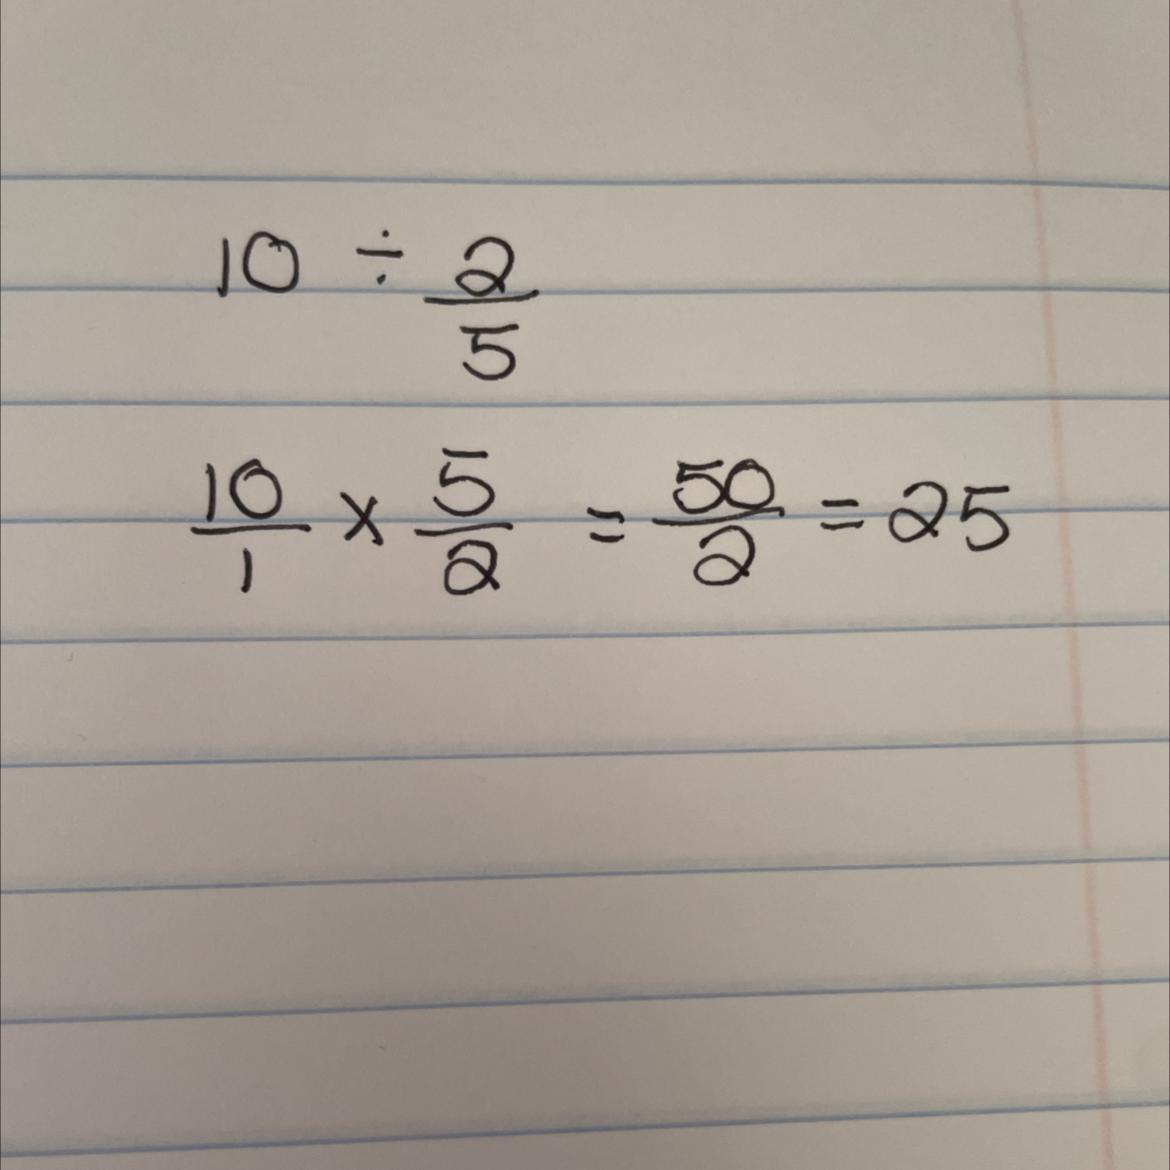 10 ÷ 2/5
10/1 x 5/2 = 50/2 = 25